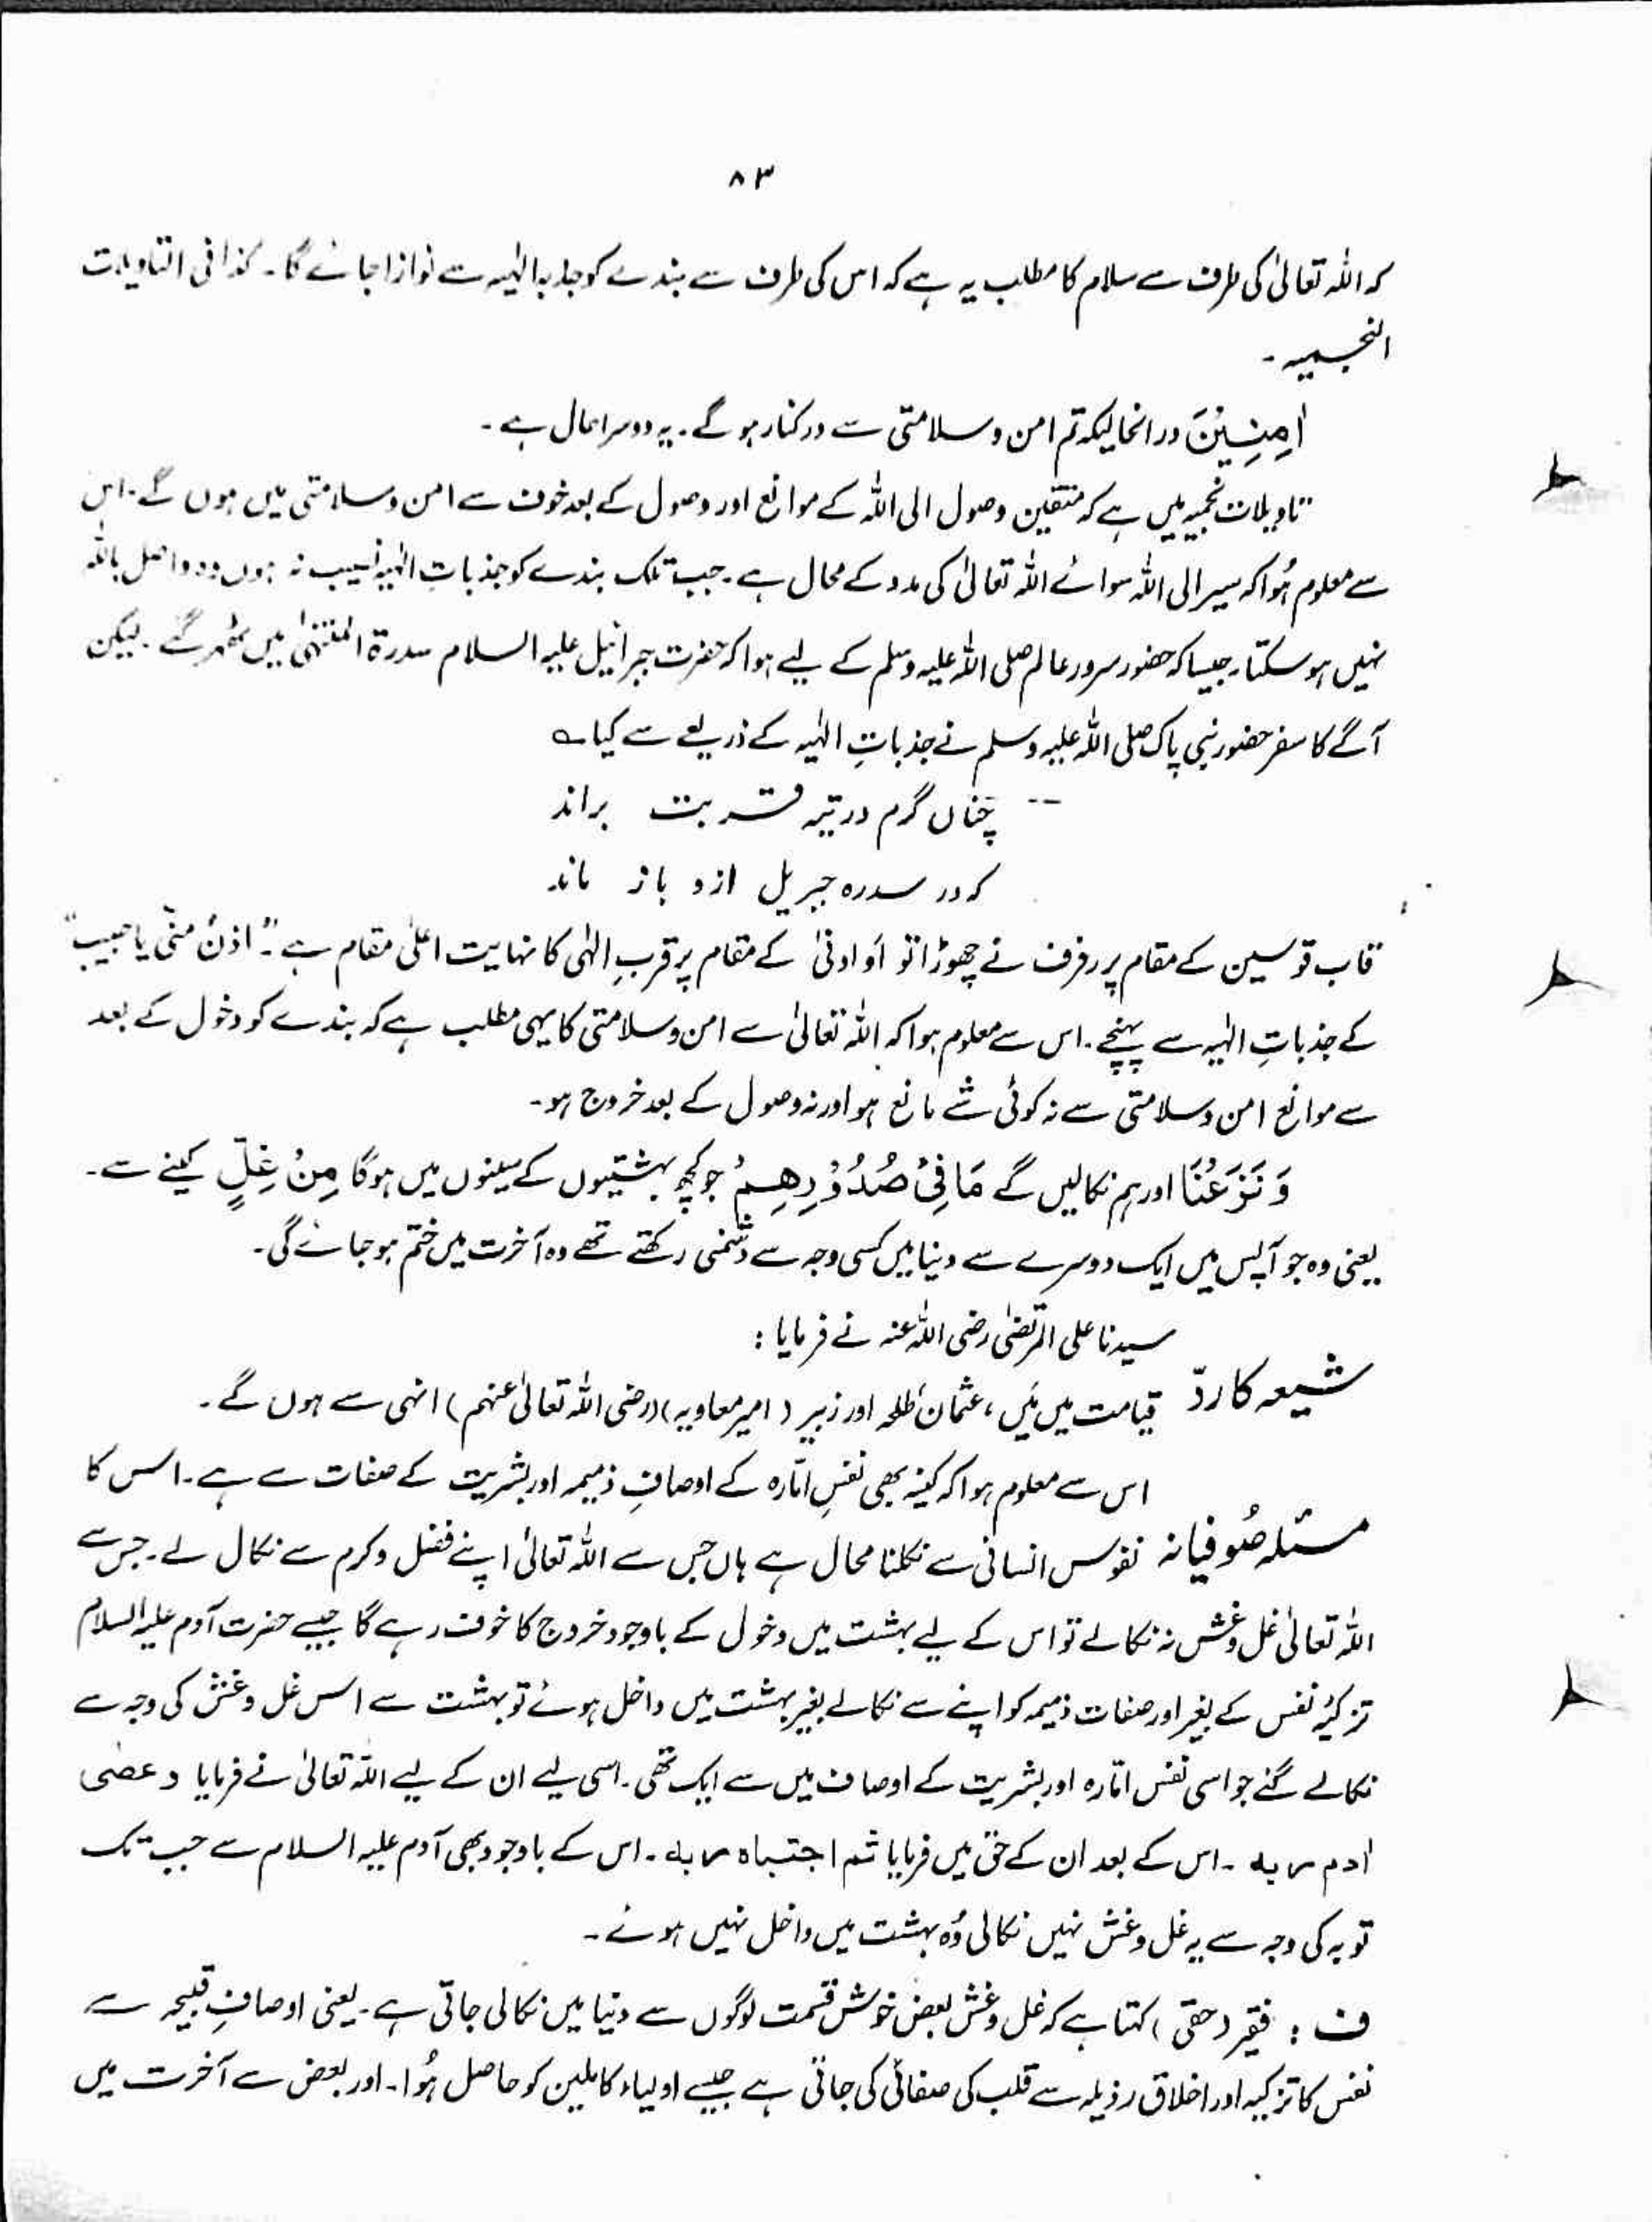 ۸۳
کہ اللہ تعالیٰ کی طرف سے سلام کا مطلب یہ ہے کہ اس کی طرف سے بندے کو جذبہ الٰہیہ سے نوازا جائے گا۔ کذا فی التاویلات
النجمیہ۔
اٰمِنِیْنَ درانحالیکہ تم امن و سلامتی سے درکنار ہو گے۔ یہ دوسرا حال ہے۔
تاویلات نجمیہ میں ہے کہ متقین وصول الی اللہ کے موانع اور وصول کے بعد خوف سے امن و سلامتی میں ہوں گے۔ اس
سے معلوم ہُوا کہ سیر الی اللہ سوائے اللہ تعالیٰ کی مدد کے محال ہے۔ جب تک بندے کو جذباتِ الٰہیہ نصیب نہ ہوں وہ واصل باللہ
نہیں ہو سکتا۔ جیسا کہ حضور سرور عالم صلی اللہ علیہ وسلم کے لیے ہوا کہ حضرت جبرائیل علیہ السلام سدرۃ المنتہیٰ میں ٹھہر گئے۔ لیکن
آگے کا سفر حضور نبی پاک صلی اللہ علیہ وسلم نے جذباتِ الٰہیہ کے ذریعے سے کیا ؎
چناں گرم در تیہ قربت براند
کہ در سدرہ جبریل ازو باز ماند
قاب قوسین کے مقام پر رفرف نے چھوڑا تو اَو ادنیٰ کے مقام پر قربِ الٰہی کا نہایت اعلیٰ مقام ہے۔ "اذنُ منّی یا حبیب"
کے جذباتِ الٰہیہ سے پہنچے۔ اس سے معلوم ہوا کہ اللہ تعالیٰ سے امن و سلامتی کا یہی مطلب ہے کہ بندے کو دخول کے بعد
سے موانع امن و سلامتی سے نہ کوئی شے مانع ہو اور نہ وصول کے بعد خروج ہو۔
وَ نَزَعْنَا اور ہم نکالیں گے مَا فِیْ صُدُوْرِهِمْ جو کچھ بہشتیوں کے سینوں میں ہوگا مِنْ غِلٍّ کینے سے۔
یعنی وہ جو آپس میں ایک دوسرے سے دنیا میں کسی وجہ سے دشمنی رکھتے تھے وہ آخرت میں ختم ہو جائے گی۔
سیدنا علی المرتضیٰ رضی اللہ عنہ نے فرمایا :
شیعہ کا ردّ قیامت میں مَیں، عثمان طلحہ اور زبیر (امیر معاویہ) (رضی اللہ تعالیٰ عنہم) انہی سے ہوں گے۔
اس سے معلوم ہوا کہ کینہ بھی نفسِ امّارہ کے اوصافِ ذمیمہ اور بشریت کے صفات سے ہے۔ اس کا
مسئلہ صُوفیانہ نفوس انسانی سے نکلنا محال ہے ہاں جس سے اللہ تعالیٰ اپنے فضل و کرم سے نکال لے۔ جس سے
اللہ تعالیٰ غل و غش نہ نکالے تو اس کے لیے بہشت میں دخول کے باوجود خروج کا خوف رہے گا جیسے حضرت آدم علیہ السلام
تزکیۂ نفس کے بغیر اور صفات ذمیمہ کو اپنے سے نکالے بغیر بہشت میں داخل ہوئے تو بہشت سے اس غل و غش کی وجہ سے
نکالے گئے جو اسی نفس امّارہ اور بشریت کے اوصاف میں سے ایک تھی۔ اسی لیے ان کے لیے اللہ تعالیٰ نے فرمایا و عصٰی
اٰدم ربه ۔ اس کے بعد ان کے حق میں فرمایا ثم اجتباہ ربه ۔ اس کے باوجود بھی آدم علیہ السلام سے جب تک
توبہ کی وجہ سے یہ غل و غش نہیں نکالی وُہ بہشت میں داخل نہیں ہوئے۔
ف : فقیر (حقی) کہتا ہے کہ غل و غش بعض خوش قسمت لوگوں سے دنیا میں نکالی جاتی ہے۔ یعنی اوصافِ قبیحہ سے
نفس کا تزکیہ اور اخلاق رذیلہ سے قلب کی صفائی کی جاتی ہے جیسے اولیاء کاملین کو حاصل ہُوا۔ اور بعض سے آخرت میں